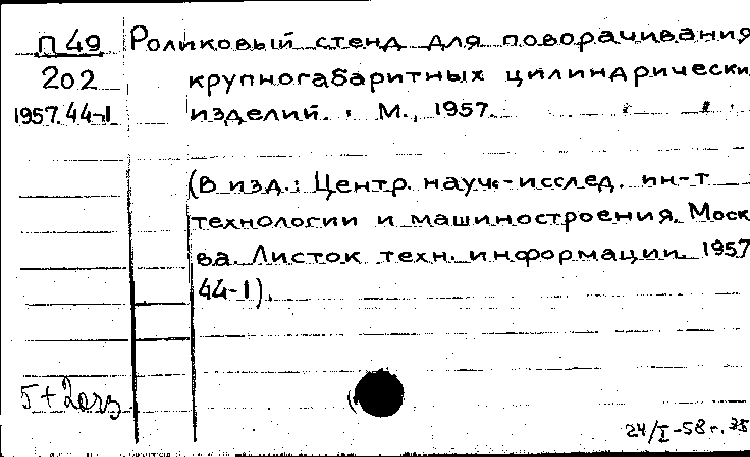 П 49 Роликовый стенд для поворачивания
202 крупногабаритных цилиндрически
1957.44-1 изделий. М., 1957.
(В изд.: Центр. науч.-исслед. ин-т
технологии и машиностроения. Моск
ва. Листок техн. информации. 1957
44-1).
5+2экз
24/I-58 г.